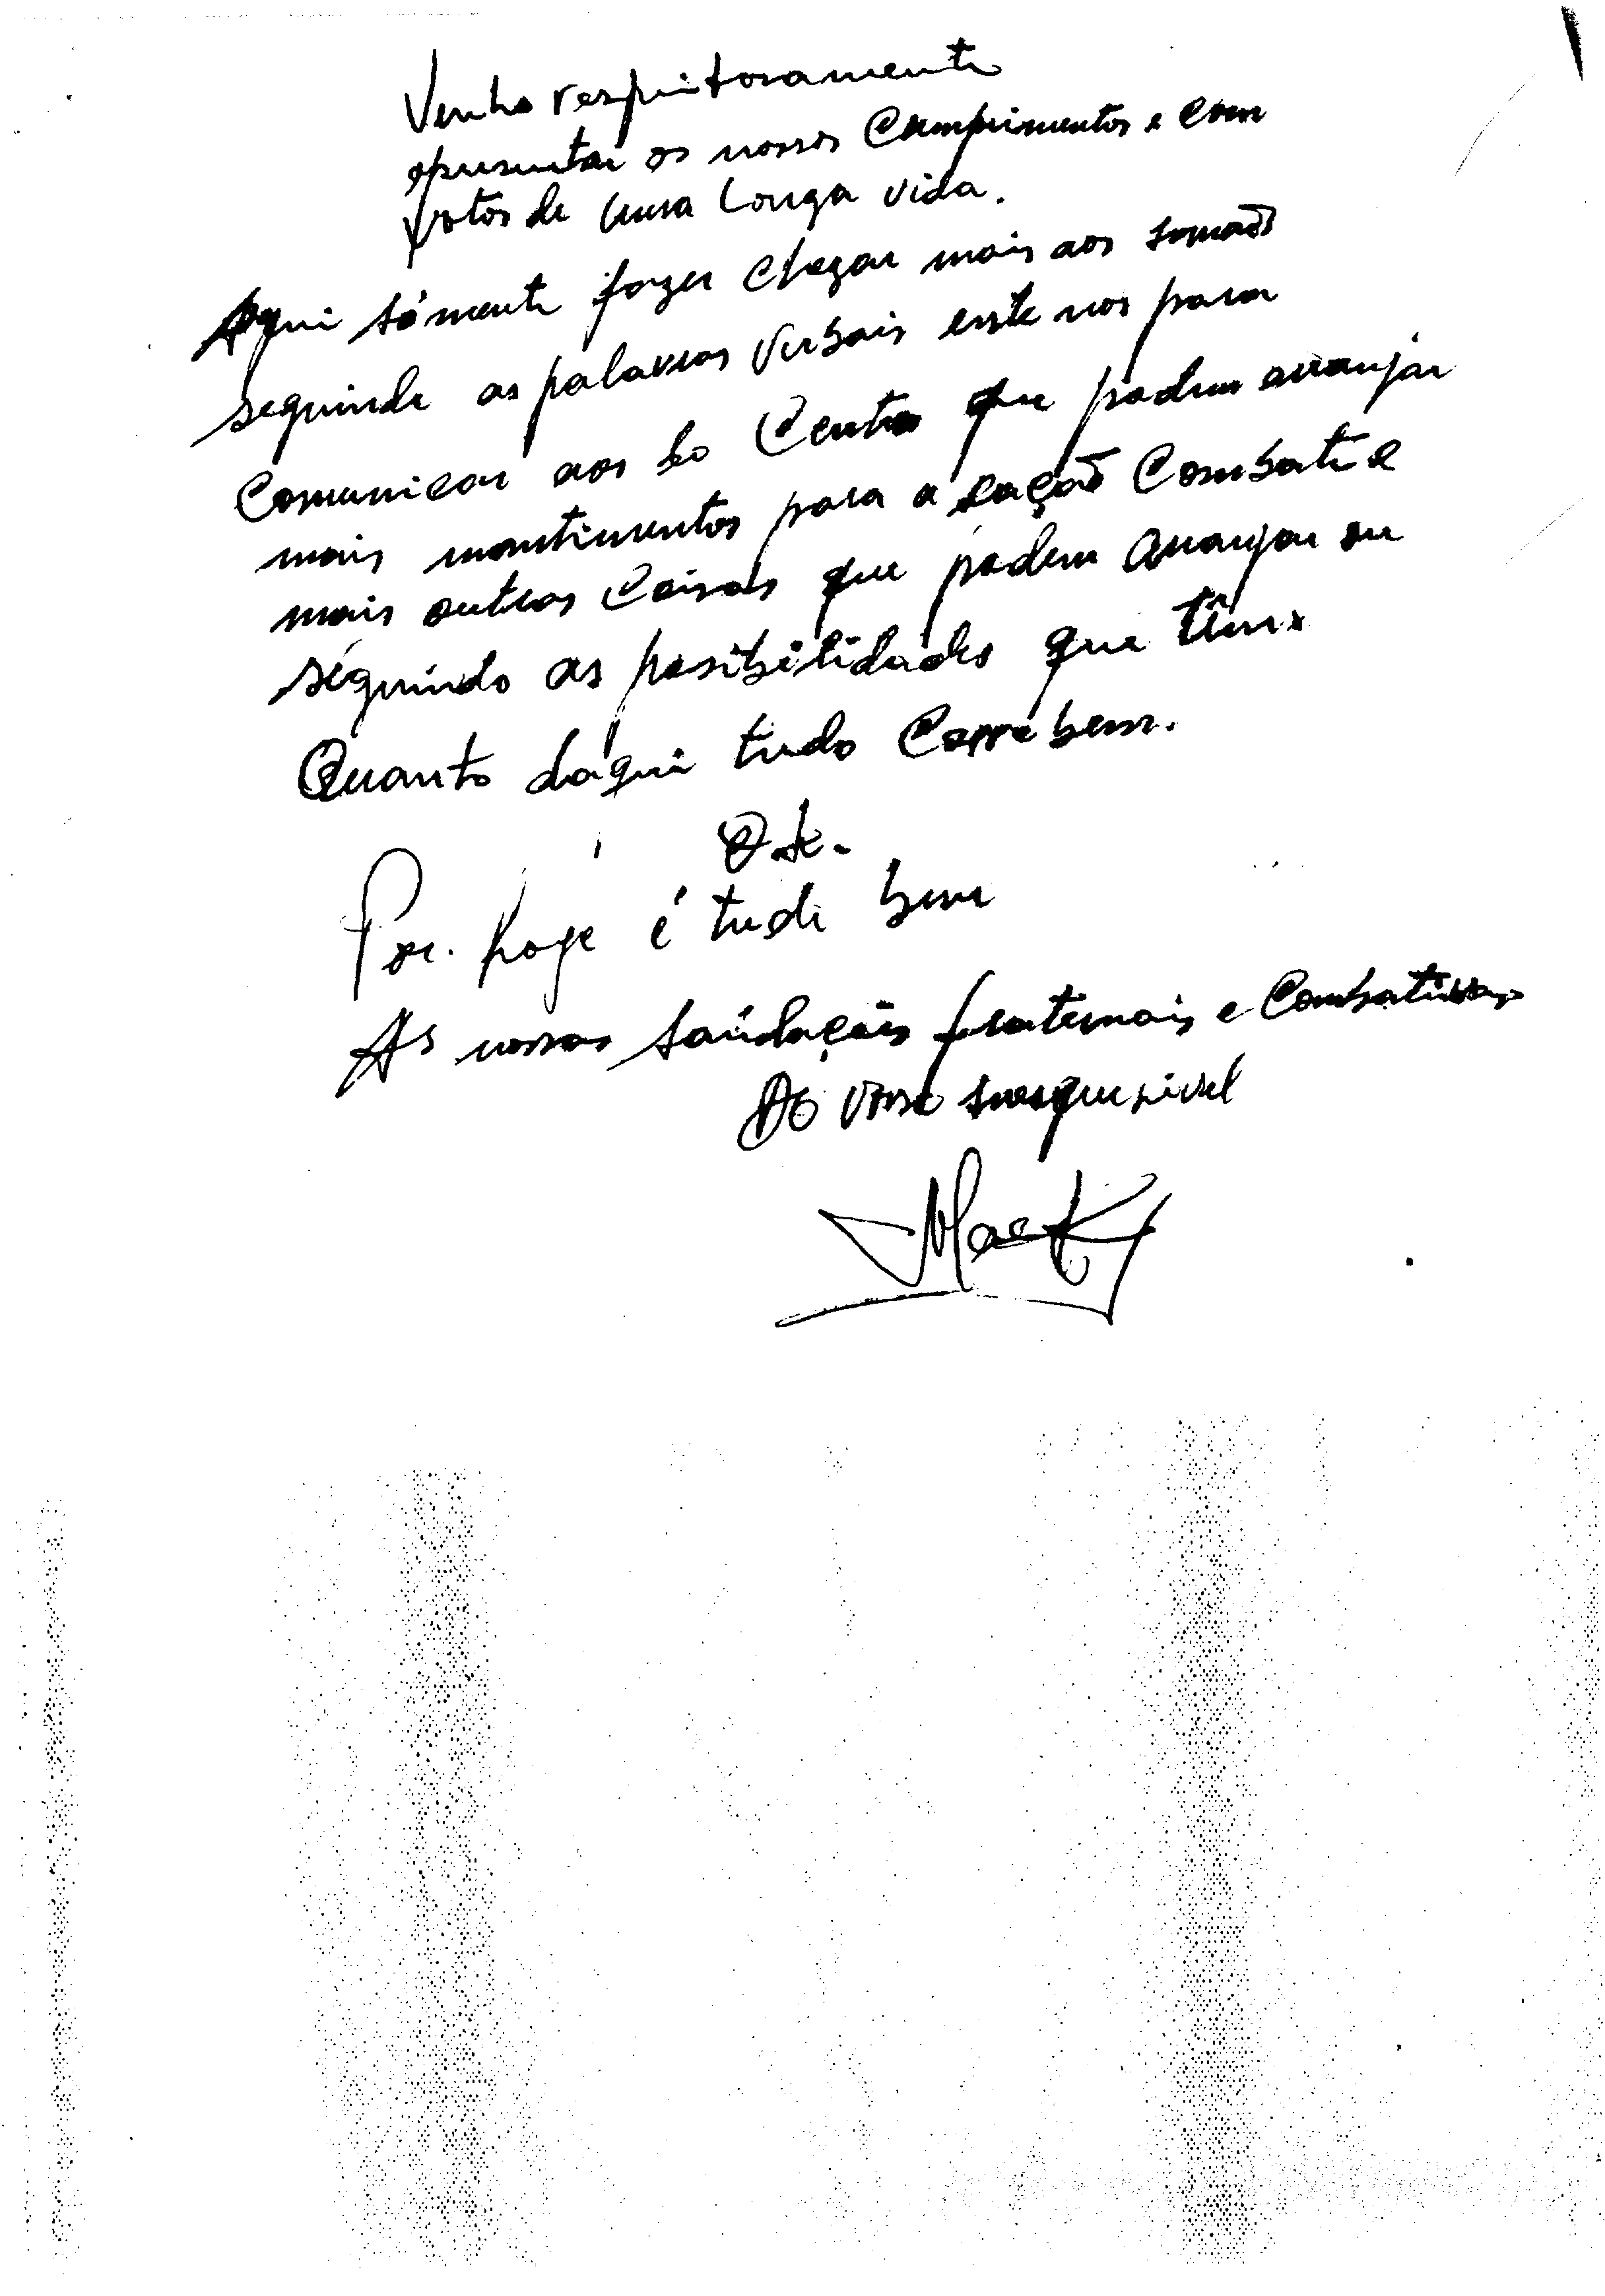 Venho respeitosamente
apresentar os nossos Comprimentos e com
votos de uma Longa vida.
Aqui sómente fazer chegar mais aos
seguinde as palavras Verbais este nos para
Comunicar aos do Centro que podem arranjar
mais mantimentos para a ração Combate e
mais outras Coisas que podem arranjar ou
seguindo as posibilidades que têm.
Quanto daqui tudo Corre bem.
O.k.
Por. hoje é tudi bem
As nossas saúdações fraternais e Combativas
Do vosso inesquesivel
Mack